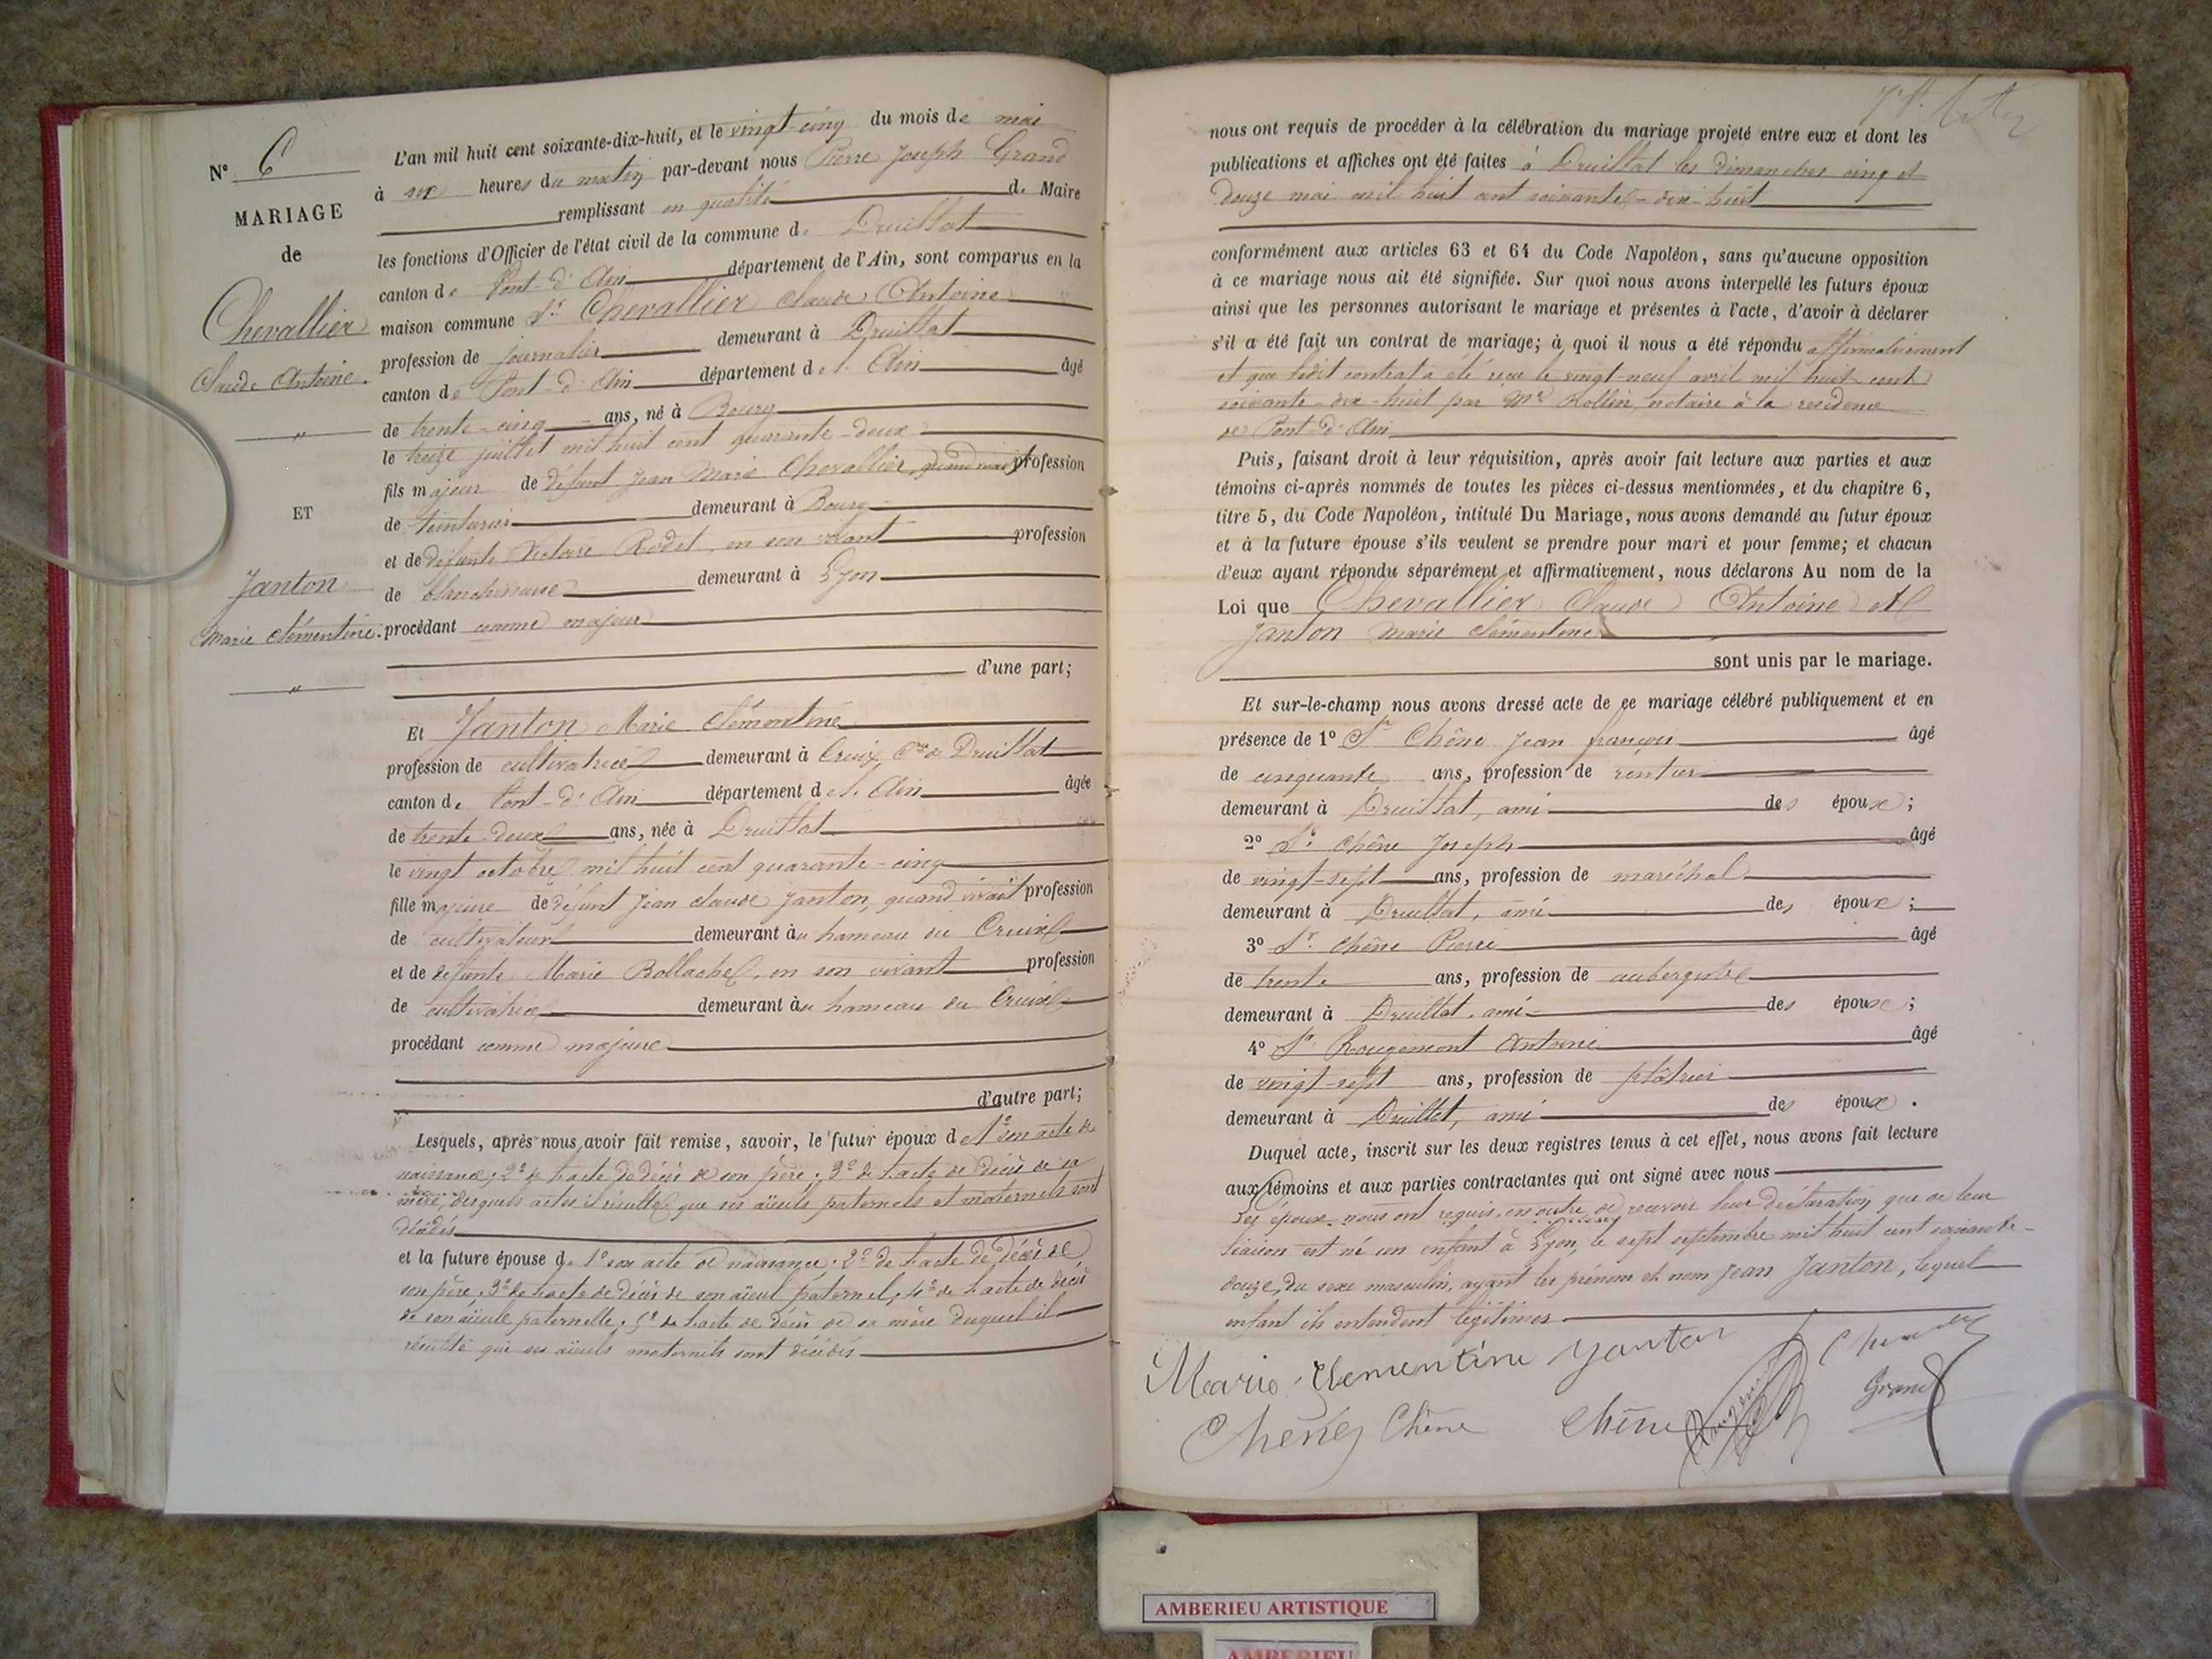 N° 6
MARIAGE
de
Chevallier
Claude Antoine.
"
ET
Janton
Marie Clémentine.
"
L'an mil huit cent soixante-dix-huit, et le vingt-cinq du mois de mai
à six heures du matin par-devant nous Pierre Joseph Grand
remplissant en qualité de Maire
les fonctions d'Officier de l'état civil de la commune de Druillat
canton de Pont-d'Ain département de l'Ain, sont comparus en la
maison commune Sr Chevallier Claude Antoine
profession de journalier demeurant à Druillat
canton de Pont-d'Ain département de l'Ain âgé
de trente-cinq ans, né à Bourg
le treize juillet mil huit cent quarante-deux
fils majeur de défunt Jean Marie Chevallier, quand vivait profession
de teinturier demeurant à Bourg
et de défunte Victoire Rodet, en son vivant profession
de blanchisseuse demeurant à Lyon
procédant comme majeur
d'une part;
Et Janton Marie Clémentine
profession de cultivatrice demeurant à Cruix, Cne de Druillat
canton de Pont-d'Ain département de l'Ain âgée
de trente-deux ans, née à Druillat
le vingt octobre mil huit cent quarante-cinq
fille majeure de défunt Jean Claude Janton, quand vivait profession
de cultivateur demeurant au hameau du Cruix
et de défunte Marie Bollache, en son vivant profession
de cultivatrice demeurant au hameau du Cruix
procédant comme majeure
d'autre part;
Lesquels, après nous avoir fait remise, savoir, le futur époux de 1° son acte de
naissance; 2° de l'acte de décès de son père; 3° de l'acte de décès de sa
mère, desquels actes il résulte que ses aïeuls paternels et maternels sont
décédés
et la future épouse de 1° son acte de naissance; 2° de l'acte de décès de
son père; 3° de l'acte de décès de son aïeul paternel; 4° de l'acte de décès
de son aïeule paternelle; 5° de l'acte de décès de sa mère duquel il
résulte que ses aïeuls maternels sont décédés
nous ont requis de procéder à la célébration du mariage projeté entre eux et dont les
publications et affiches ont été faites à Druillat les dimanches cinq et
douze mai mil huit cent soixante-dix-huit
conformément aux articles 63 et 64 du Code Napoléon, sans qu'aucune opposition
à ce mariage nous ait été signifiée. Sur quoi nous avons interpellé les futurs époux
ainsi que les personnes autorisant le mariage et présentes à l'acte, d'avoir à déclarer
s'il a été fait un contrat de mariage; à quoi il nous a été répondu affirmativement
et que ledit contrat a été reçu le vingt-neuf avril mil huit cent
soixante-dix-huit par Me Rollin, notaire à la résidence
de Pont-d'Ain
Puis, faisant droit à leur réquisition, après avoir fait lecture aux parties et aux
témoins ci-après nommés de toutes les pièces ci-dessus mentionnées, et du chapitre 6,
titre 5, du Code Napoléon, intitulé Du Mariage, nous avons demandé au futur époux
et à la future épouse s'ils veulent se prendre pour mari et pour femme; et chacun
d'eux ayant répondu séparément et affirmativement, nous déclarons Au nom de la
Loi que Chevallier Claude Antoine et
Janton Marie Clémentine
sont unis par le mariage.
Et sur-le-champ nous avons dressé acte de ce mariage célébré publiquement et en
présence de 1° Sr Chêne Jean françois âgé
de cinquante ans, profession de rentier
demeurant à Druillat, ami des époux;
2° Sr Chêne Joseph âgé
de vingt-sept ans, profession de maréchal
demeurant à Druillat, ami des époux;
3° Sr Chêne Pierre âgé
de trente ans, profession de aubergiste
demeurant à Druillat, ami des époux;
4° Sr Rougemont Antoine âgé
de vingt-sept ans, profession de plâtrier
demeurant à Druillat, ami des époux.
Duquel acte, inscrit sur les deux registres tenus à cet effet, nous avons fait lecture
aux témoins et aux parties contractantes qui ont signé avec nous
Les époux nous ont requis, en outre, de recevoir leur déclaration que de leur
liaison est né un enfant à Lyon, le sept septembre mil huit cent soixante-
douze, du sexe masculin, ayant les prénom et nom Jean Janton, lequel
enfant ils entendent légitimer
Marie Clementine Janton
Chêne Chêne Chêne Grand
AMBERIEU ARTISTIQUE
AMBERIEU